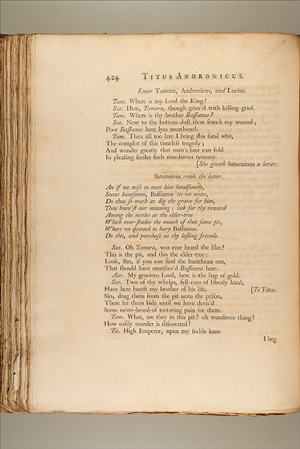 424 TITUS ANDRONICUS.
Enter Tamora, Andronicus, and Lucius.
Tam. Where is my Lord the King?
Sat. Here, Tamora, though griev'd with killing grief.
Tam. Where is thy brother Bassianus?
Sat. Now to the bottom dost thou search my wound;
Poor Bassianus here lyes murthered.
Tam. Then all too late I bring this fatal writ,
The complot of this timeless tragedy;
And wonder greatly that man's face can fold
In pleasing smiles such murderous tyranny.
[She giveth Saturninus a letter.
Saturninus reads the letter.
An if we miss to meet him handsomely,
Sweet huntsman, Bassianus 'tis we mean,
Do thou so much as dig the grave for him,
Thou know'st our meaning: look for thy reward
Among the nettles at the elder-tree
Which over-shades the mouth of that same pit,
Where we decreed to bury Bassianus.
Do this, and purchase us thy lasting friends.
Sat. Oh Tamora, was ever heard the like?
This is the pit, and this the elder-tree:
Look, Sirs, if you can find the huntsman out,
That should have murther'd Bassianus here.
Aar. My gracious Lord, here is the bag of gold.
Sat. Two of thy whelps, fell curs of bloody kind,
Have here bereft my brother of his life. [To Titus.
Sirs, drag them from the pit unto the prison,
There let them bide until we have devis'd
Some never-heard-of torturing pain for them.
Tam. What, are they in this pit? oh wondrous thing!
How easily murder is discovered!
Tit. High Emperor, upon my feeble knee
I beg